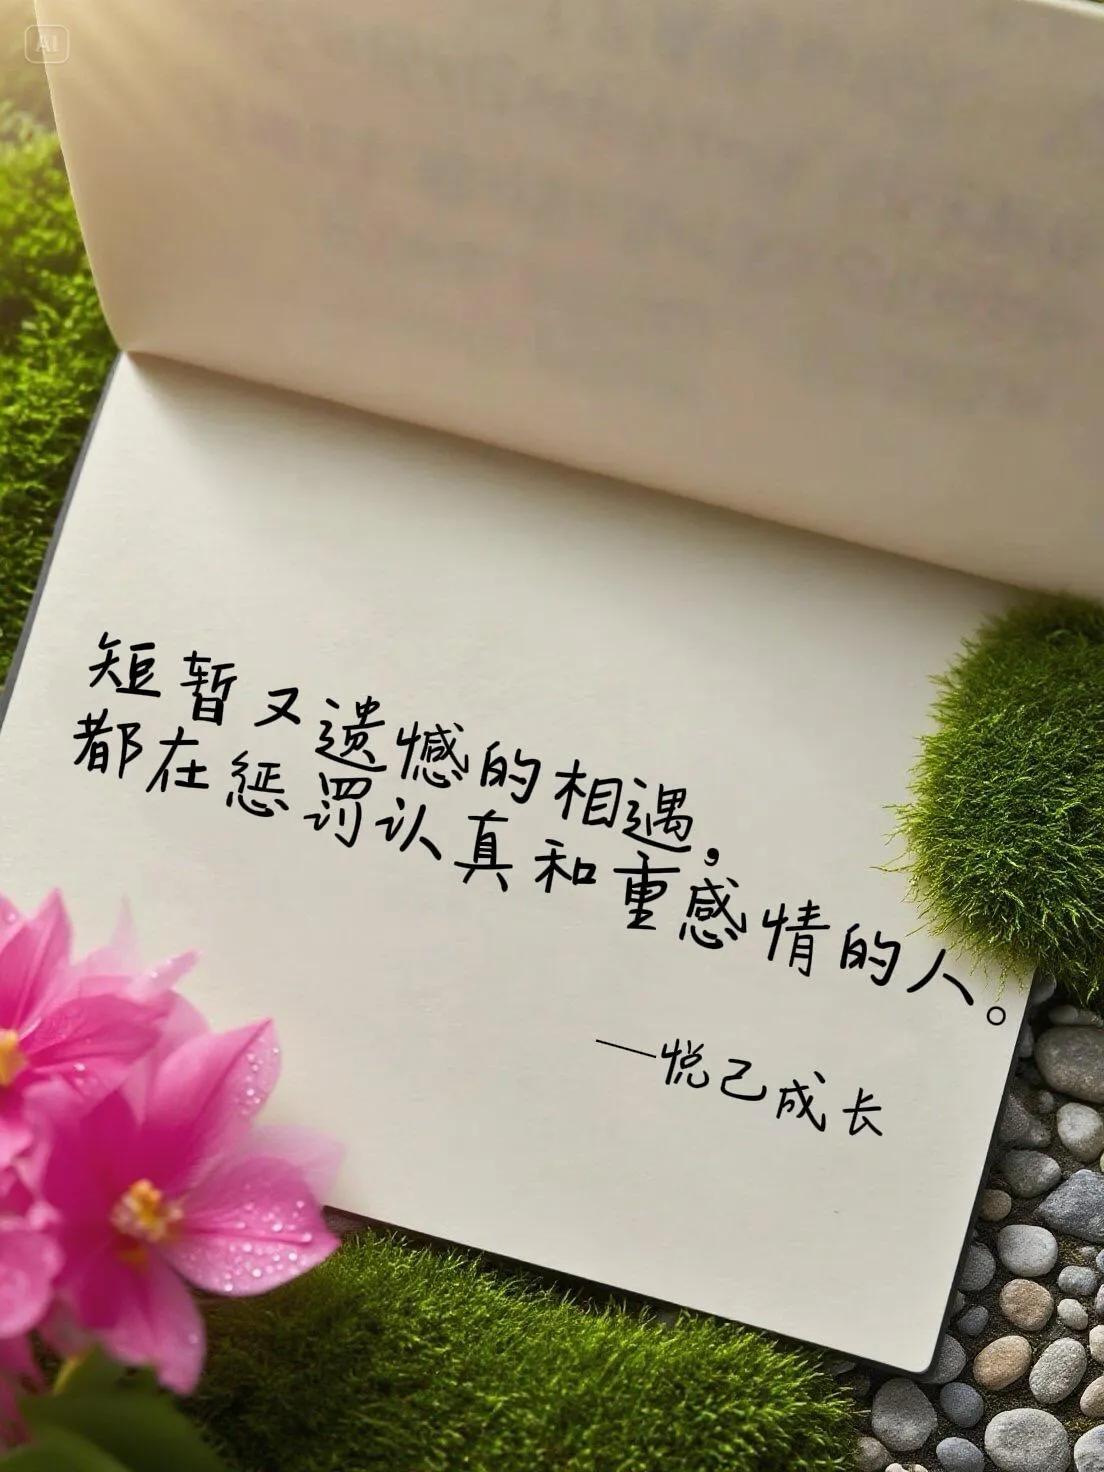 AI
短暂又遗憾的相遇，
都在惩罚认真和重感情的人。
—悦己成长